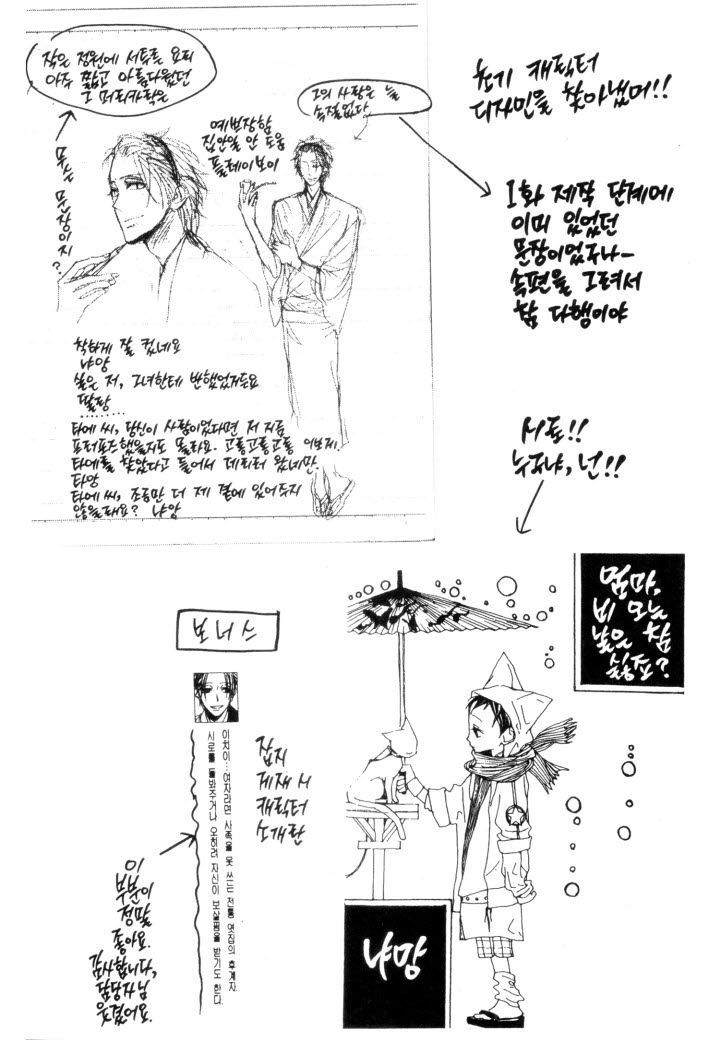 작은 정원에 서투른 요리
아주 짧고 아름다웠던
그 머리카락은
무슨 문장이지?
예비장함
집안일 안 도움
플레이보이
그의 사랑은 늘
속절없다
초기 캐릭터
디자인을 찾아냈어!!
1화 제작 단계에
이미 있었던
문장이었구나~
속편을 그려서
참 다행이야
착하게 잘 컸네요
냐앙
실은 저, 그녀한테 반했었거든요
딸랑
타에 씨, 당신이 사람이었다면 저 지금
프러포즈했을지도 몰라요. 고롱고롱고롱 이보게.
타에를 찾았다고 들어서 데리러 왔네만.
타앙
타에 씨, 조금만 더 제 곁에 있어주지
않을래요? 냐앙
시로!!
누구냐, 넌!!
엄마,
비 오는
날은 참
싫죠?
보너스
잡지
게재 시
캐릭터
소개란
이치이…여자라면 사족을 못 쓰는 전통 엿집의 후계자.
시로를 돌봐주거나 오히려 자신이 보살핌을 받기도 한다.
이
부분이
정말
좋아요.
감사합니다,
담당자님
웃겼어요.
냐앙